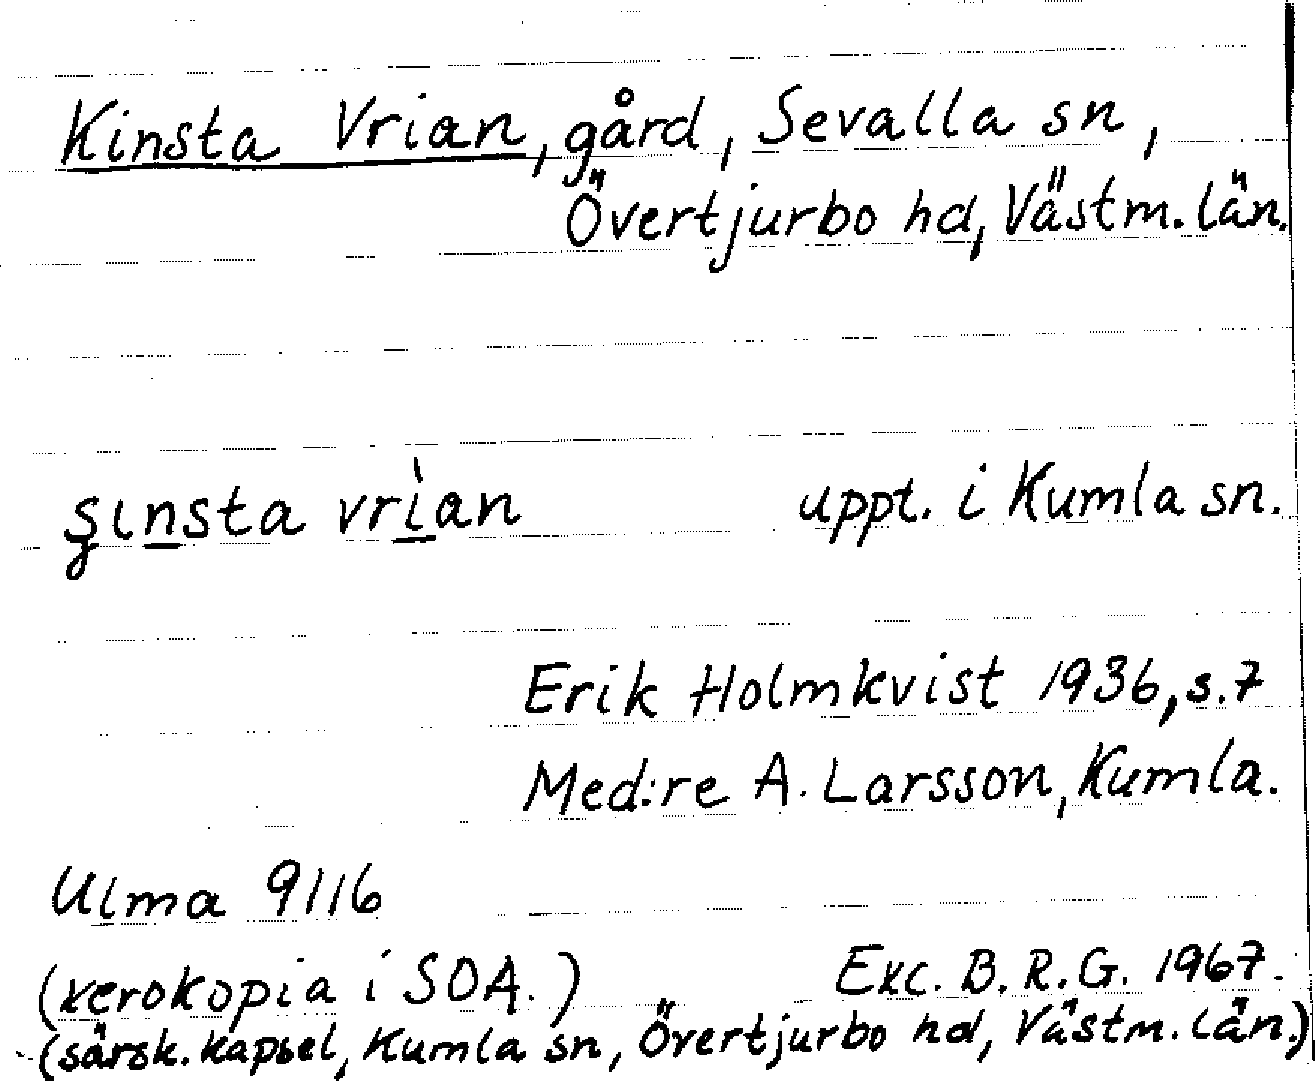 Kinsta Vrian, gård, Sevalla sn,
Övertjurbo hd, Västm. län.
uppt. i Kumla sn.
Erik Holmkvist 1936, s. 7
Med:re A. Larsson, Kumla.
Ulma 9116
(xerokopia i SOA.) Exc. B. R. G. 1967.
(särsk. kapsel, Kumla sn, Övertjurbo hd, Västm. län.)